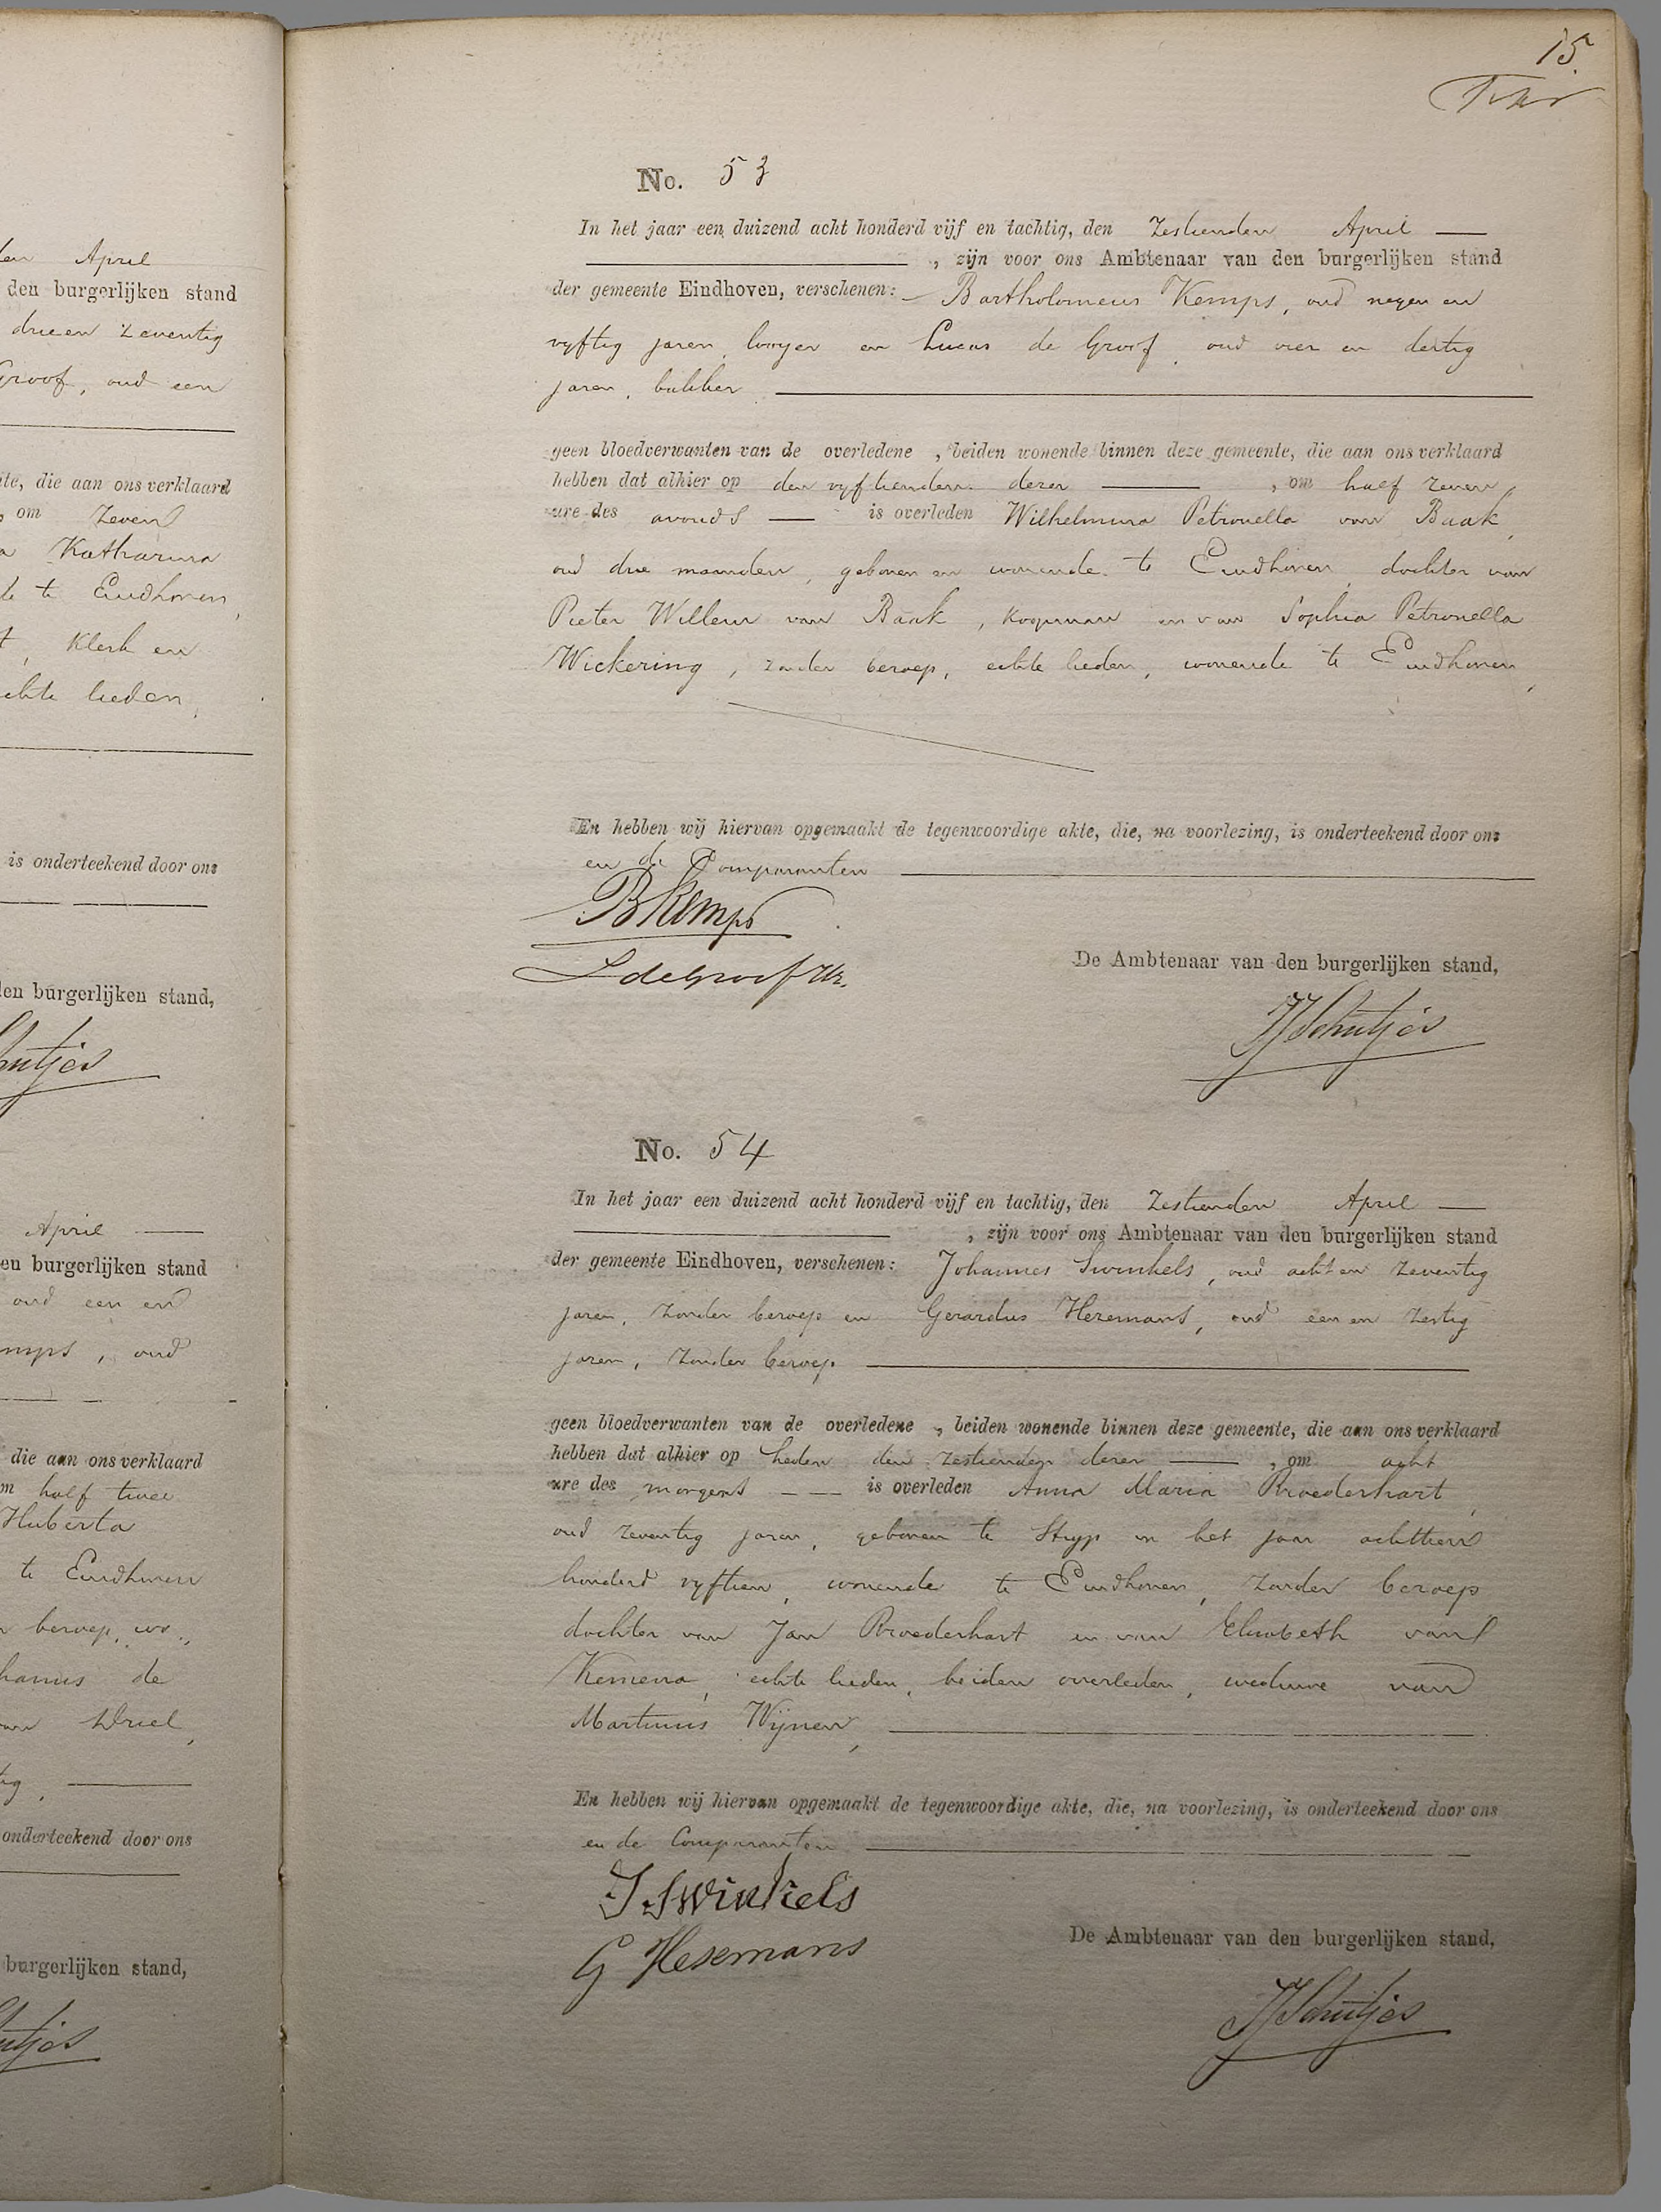 den April
den burgerlijken stand
drieen zeventig
Groof, oud een
te, die aan ons verklaard
, om zeven
Katharina
te Eindhoven,
, klerk en
echte lieden,
is onderteekend door ons
den burgerlijken stand,
April
en burgerlijken stand
oud een en
mps, oud
die aan ons verklaard
m half twee
Huberta
te Eindhoven
beroep, wo-
hanus de
Driel,
onderteekend door ons
burgerlijken stand,
15.
No. 53
In het jaar een duizend acht honderd vijf en tachtig, den Zestienden April
, zijn voor ons Ambtenaar van den burgerlijken stand
der gemeente Eindhoven, verschenen: Bartholomeus Kemps, oud negen en
vyftig jaren, looyer en Lucas de Groof, oud vier en dertig
jaren, bakker
geen bloedverwanten van de overledene, beiden wonende binnen deze gemeente, die aan ons verklaard
hebben dat alhier op den vyftienden dezer, om half zeven
ure des avonds is overleden Wilhelmina Petronella van Baak,
oud drie maanden, geboren en wonende te Eindhoven, dochter van
Pieter Willem van Baak, koopman en van Sophia Petronella
Wickering, zonder beroep, echte lieden, wonende te Eindhoven,
En hebben wij hiervan opgemaakt de tegenwoordige akte, die, na voorlezing, is onderteekend door ons
en de Comparanten
B Kemps
L de Groof
De Ambtenaar van den burgerlijken stand,
Schutjes
No. 54
In het jaar een duizend acht honderd vijf en tachtig, den Zestienden April
, zijn voor ons Ambtenaar van den burgerlijken stand
der gemeente Eindhoven, verschenen: Johannes Swinkels, oud acht en zeventig
jaren, zonder beroep en Gerardus Hezemans, oud een en zestig
jaren, zonder beroep
geen bloedverwanten van de overledene, beiden wonende binnen deze gemeente, die aan ons verklaard
hebben dat alhier op heden den zestienden dezer, om acht
ure des morgens is overleden Anna Maria Broederhart,
oud zeventig jaren, geboren te Stryp in het jaar achttien
honderd vyftien, wonende te Eindhoven, zonder beroep
dochter van Jan Broederhart en van Elisabeth van
Kemena, echte lieden, beiden overleden, weduwe van
Martinus Wijnen,
En hebben wij hiervan opgemaakt de tegenwoordige akte, die, na voorlezing, is onderteekend door ons
en de Comparanten
J. Swinkels
G Hesemans
De Ambtenaar van den burgerlijken stand,
Schutjes